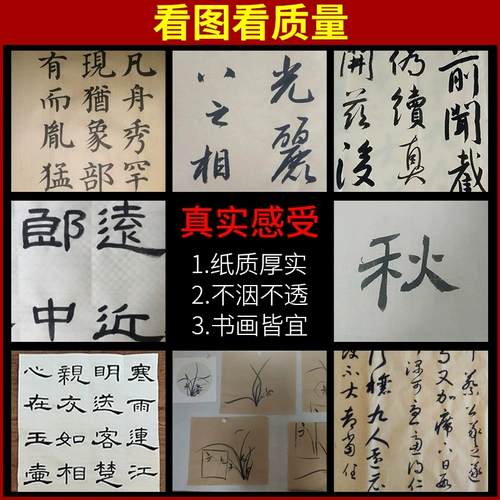 看图看质量
凡舟秀罕
現猶象部
有而胤猛
光麗
八之相
前聞截
偽續真
開茲後
遠近
郎中
真实感受
1.纸质厚实
2.不洇不透
3.书画皆宜
秋
寒雨連江
明送客楚
親友如相
心在玉壺